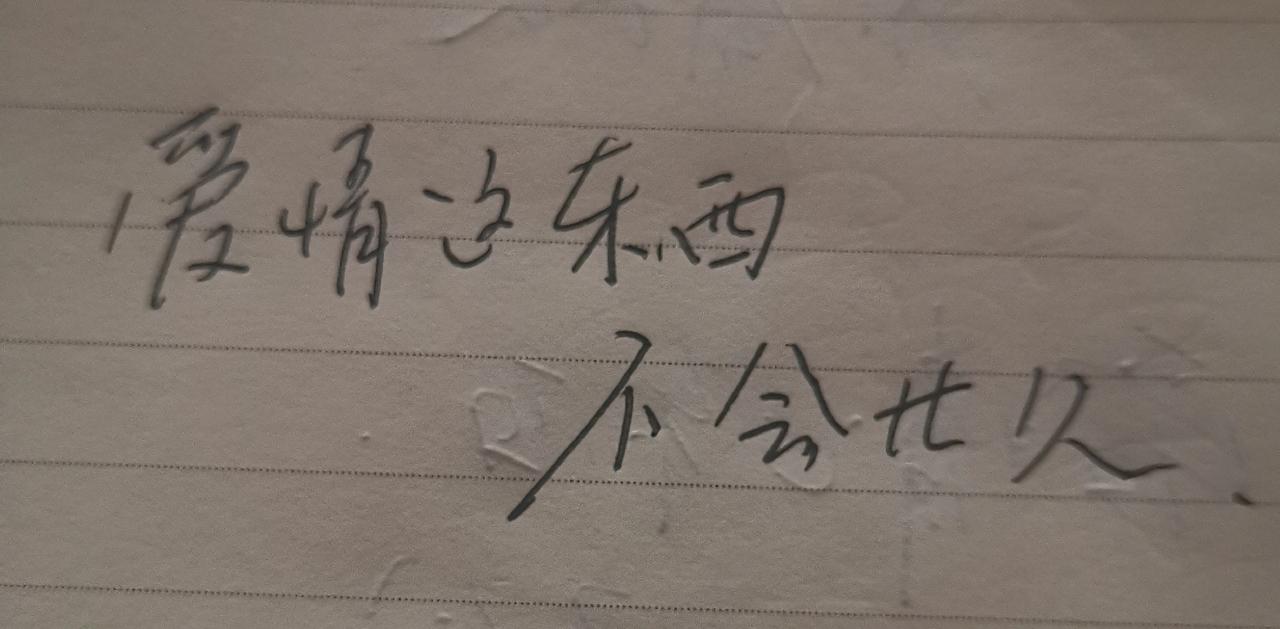 爱情这东西
不会太久